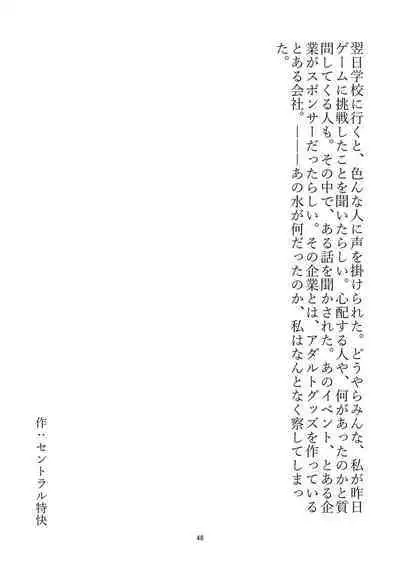 翌日学校に行くと、色んな人に声を掛けられた。どうやらみんな、私が昨日
ゲームに挑戦したことを聞いたらしい。心配する人や、何があったのかと質
問してくる人も。その中で、ある話を聞かされた。あのイベント、とある企
業がスポンサーだったらしい。その企業とは、アダルトグッズを作っている
とある会社。―――あの水が何だったのか、私はなんとなく察してしまっ
た。
作：セントラル特快
48